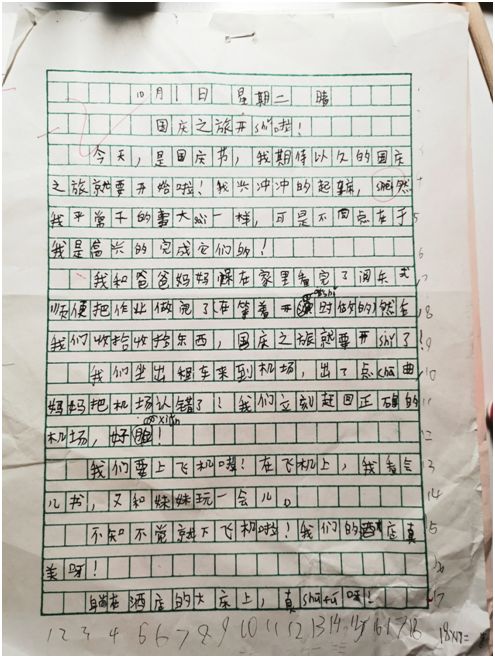 10月1日 星期二 晴
国庆之旅开shǐ啦!
今天,是国庆节,我期待以久的国庆
之旅就要开始啦!我兴冲冲的起床,suī然
我平常干的事大 一样,可是不同点在于
我是高兴的完成它们的!
我和爸爸妈妈 在家里看完了阅兵式,
顺便把作业做完了在等着 时 的 然后
我们收拾收拾东西,国庆之旅就要开shǐ了!
我们坐出租车来到机场,出了点chā曲
妈妈把机场认错了!我们立刻赶回正确的
机场,好 xiǎn!
我们要上飞机喽!在飞机上,我看会
儿书,又和妹妹玩一会儿。
不知不觉就下飞机啦!我们的酒店真
美呀!
躺在酒店的大床上,真shūfú呀!
1 2 3 4 5 6 7 8 9 10 11 12 13 14 15 16 17 18 18×17=